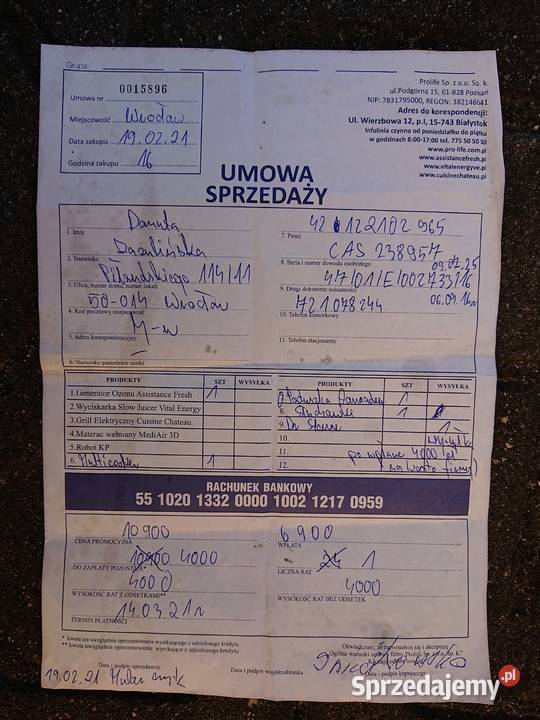 Grupa:
0015896
Umowa nr
Miejscowość Wrocław
Data zakupu 19.02.21
Godzina zakupu 16
Prolife Sp. z o.o. Sp. k.
ul.Podgórna 15, 61-828 Poznań
NIP: 7831795000, REGON: 382146641
Adres do korespondencji:
Ul. Wierzbowa 12, p.I, 15-743 Białystok
Infolinia czynna od poniedziałku do piątku
w godzinach 8:00-17:00 tel. 775 50 50 50
www.pro-life.com.pl
www.assistancefresh.pl
www.vitalenergyve.pl
www.cuisinechateau.pl
UMOWA
SPRZEDAŻY
Danuta
1. Imię
2. Nazwisko
114/11
3. Ulica, numer domu, numer lokali
50-014 Wrocław
4. Kod pocztowy miejscowość
M-w
5. Adres korespondencyjny
6. Nazwisko panieńskie matki
7. Pesel
CAS 238957
8. Seria i numer dowodu osobistego
9. Drugi dokument tożsamości
721078244
10. Telefon komórkowy
11. Telefon stacjonarny
PRODUKTY SZT WYSYŁKA
1.Generator Ozonu Assistance Fresh 1
2.Wyciskarka Slow Juicer Vital Energy
3.Grill Elektryczny Cuisine Chateau
4.Materac wełniany MediAir 3D
5.Robot KP
6. Multicooker 1
PRODUKTY SZT WYSYŁKA
7. Poduszka 1
8. 1
9.
10. wysyłka
11. po wpłacie 4000 zł
12. na konto firmy
RACHUNEK BANKOWY
55 1020 1332 0000 1002 1217 0959
10 900
CENA PROMOCYJNA
10900 4000
DO ZAPŁATY POZOSTAJE*
4000
WYSOKOŚĆ RAT Z ODSETKAMI**
14.03.21r
TERMIN PŁATNOŚCI
6 900
WPŁATA
24 1
LICZBA RAT
4000
WYSOKOŚĆ RAT BEZ ODSETEK
* kwota nie uwzględnia oprocentowania wynikającego z udzielonego kredytu
** kwota uwzględnia oprocentowanie wynikające z udzielonego kredytu
Oświadczam, że zapoznałem się i akceptuję
Ogólne warunki umowy firmy Prolife Sp. z o.o. Sp. k.
Data i podpis sprzedawcy
Data i podpis współmałżonka
Data i podpis kupującego
19.02.21
Sprzedajemy.pl